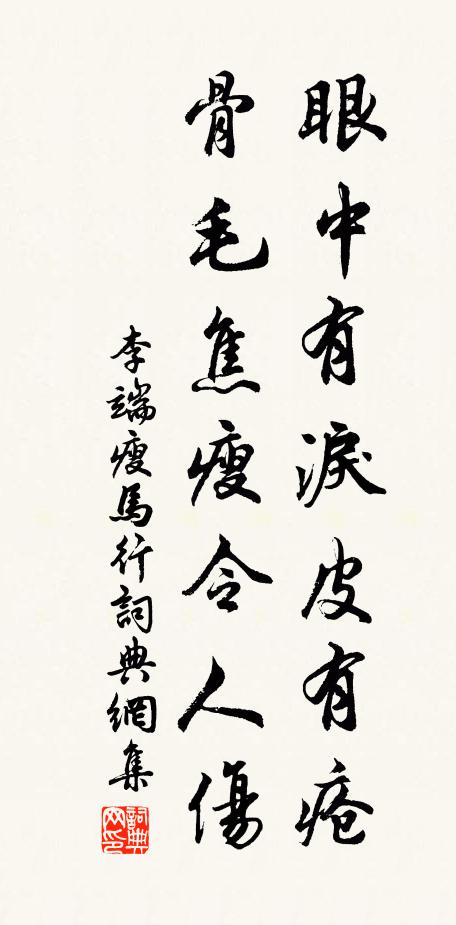 眼中有淚皮有瘡
骨毛焦瘦令人傷
李端瘦馬行詞典網集
詞典网印